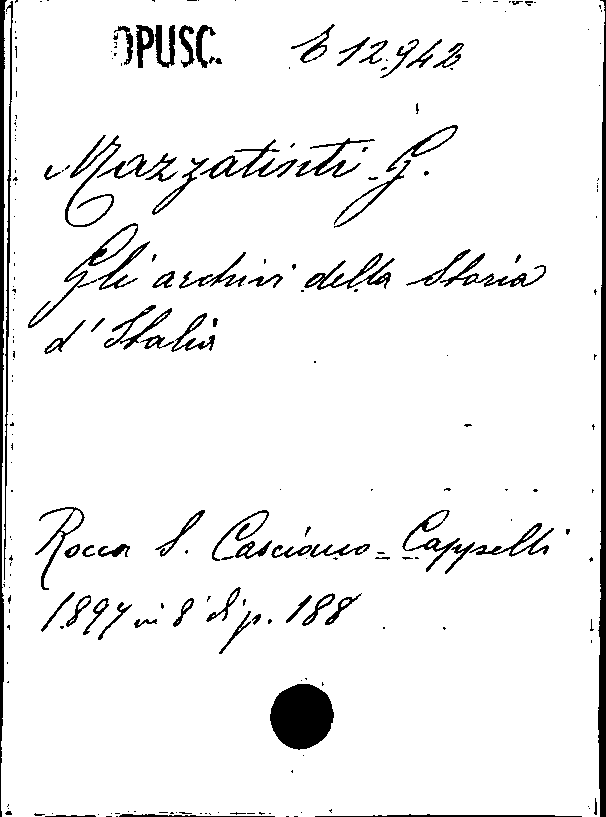 OPUSC. E 12.943
Mazzatinti G.
Gli archivi della Storia
d'Italia
Rocca S. Casciano = Cappelli
1897 in 8° di p. 188